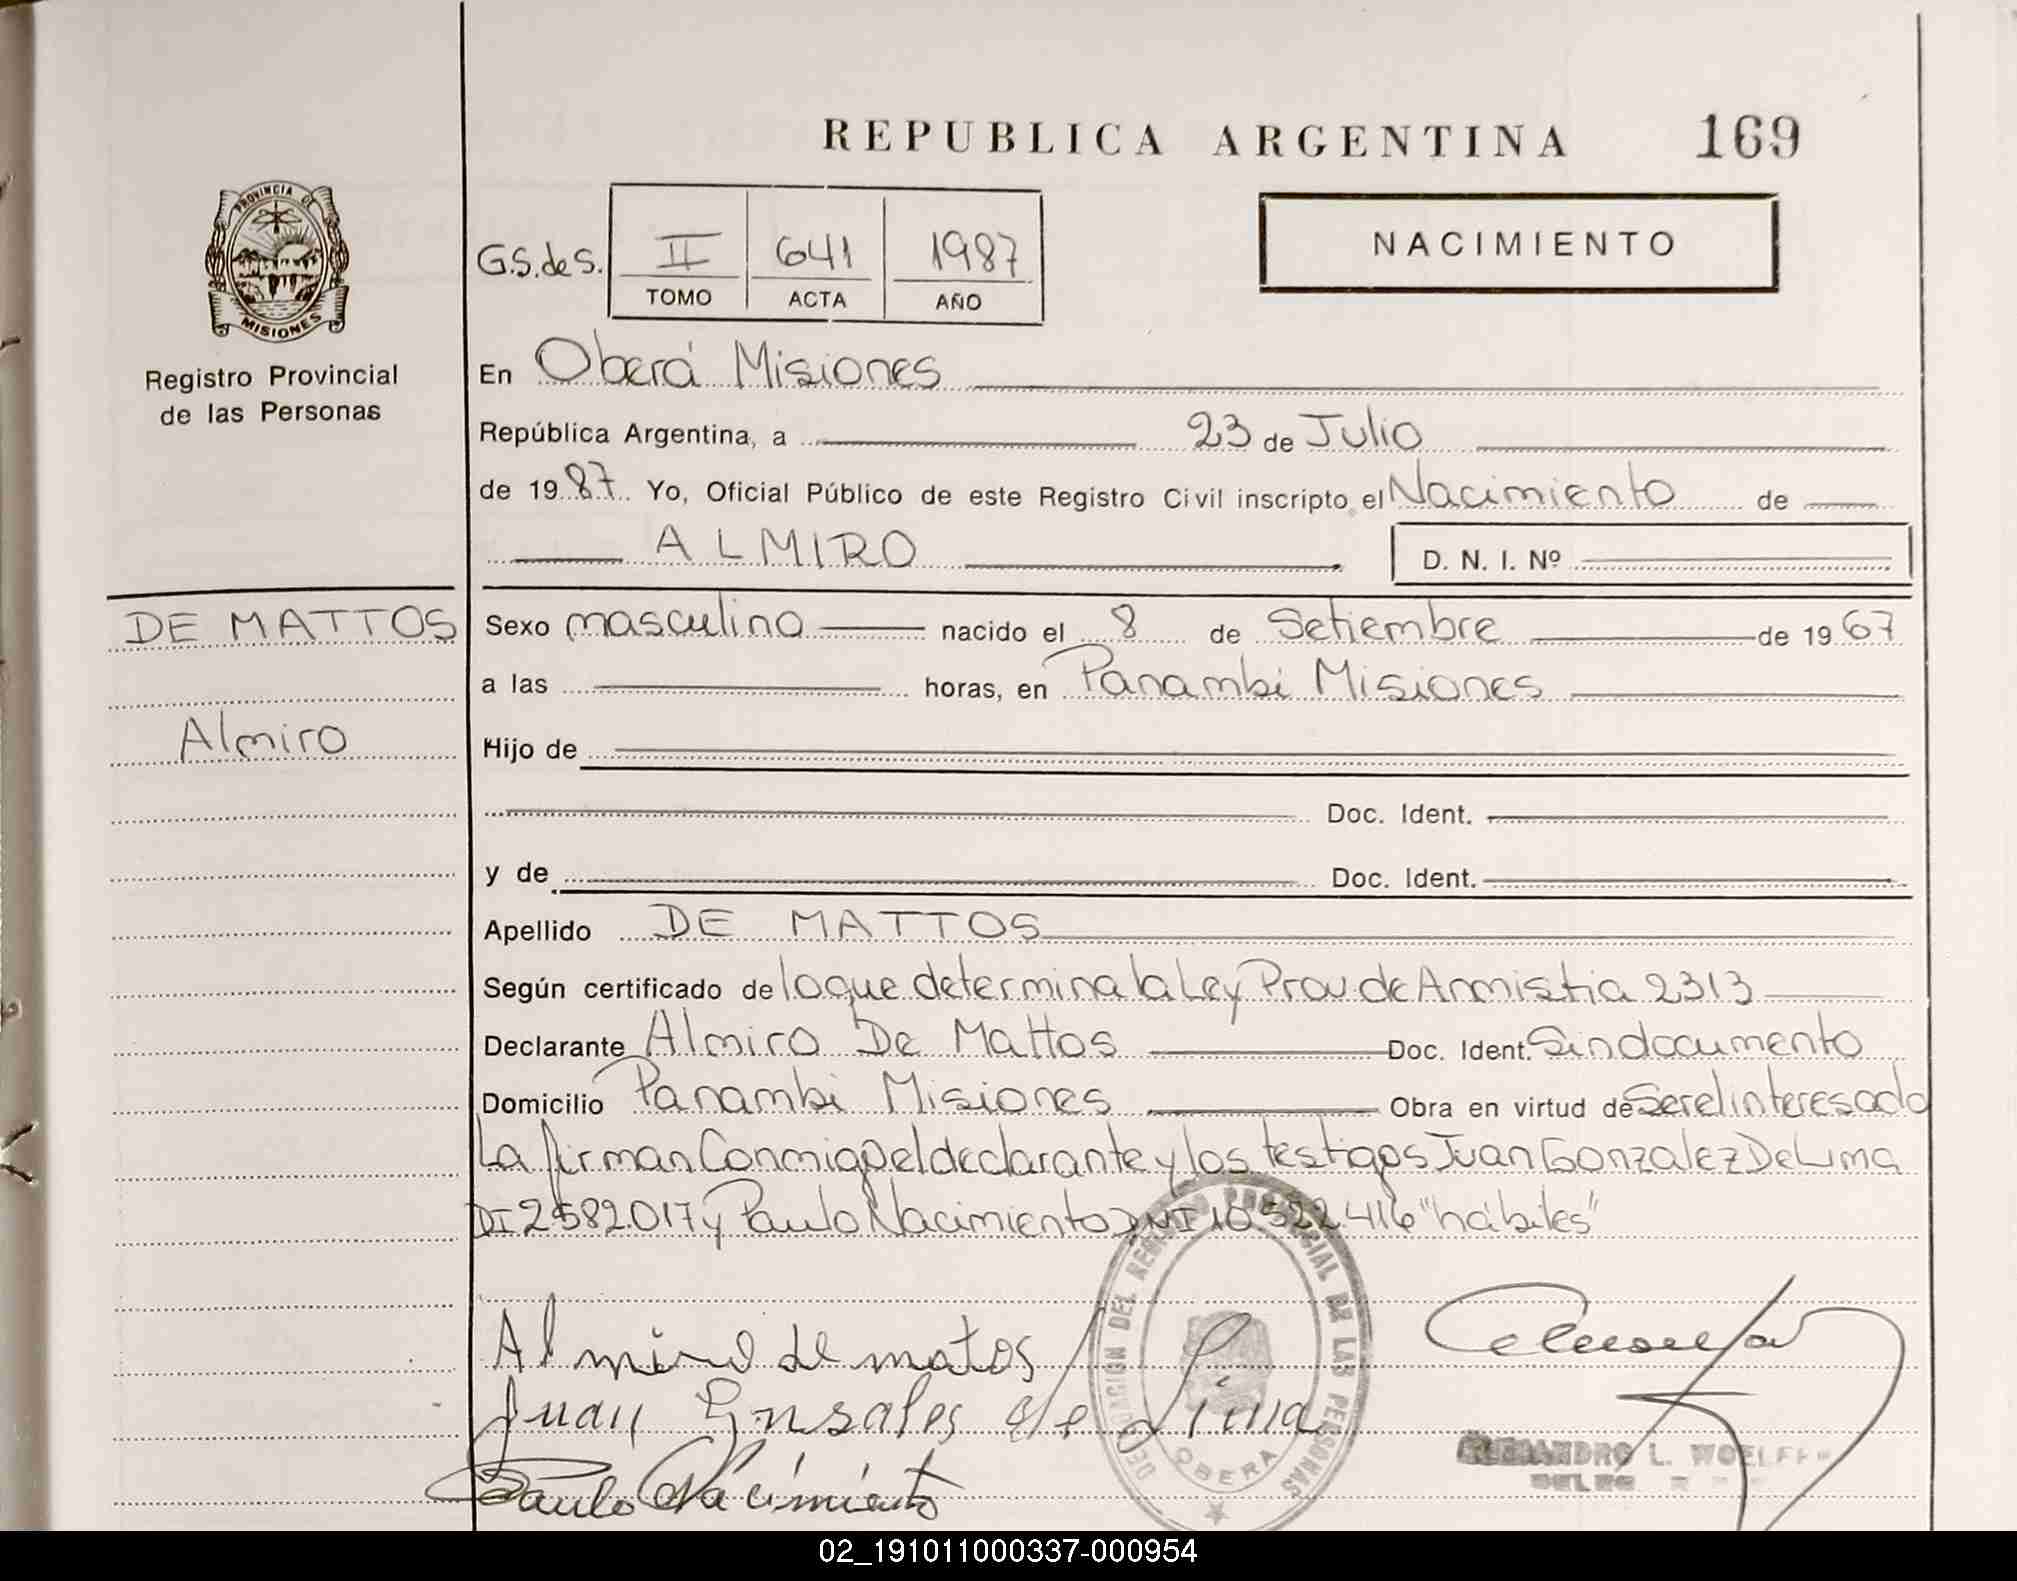 REPUBLICA ARGENTINA 169
PROVINCIA DE
MISIONES
Registro Provincial
de las Personas
G.S.deS. II 641 1987
TOMO ACTA AÑO
NACIMIENTO
En Oberá Misiones
República Argentina, a 23 de Julio
de 19 87 Yo, Oficial Público de este Registro Civil inscripto el Nacimiento de
ALMIRO D. N. I. Nº
DE MATTOS
Almiro
Sexo masculino nacido el 8 de Setiembre de 19 67
a las horas, en Panambi Misiones
Hijo de
Doc. Ident.
y de Doc. Ident.
Apellido DE MATTOS
Según certificado de lo que determina la Ley Prov. de Anmistia 2313
Declarante Almiro De Mattos Doc. Ident. Sin documento
Domicilio Panambi Misiones Obra en virtud de Ser el interesado
La firman Conmigo el declarante y los testigos Juan Gonzalez De Lima
DI 2582.017 y Paulo Nacimiento DNI 10.522.416 "hábiles"
Almiro de matos
Juan Gonsales de Lima
Paulo Nacimiento
DEL REGISTRO PROVINCIAL DE LAS PERSONAS
OBERA
L. WOELFF
02_191011000337-000954